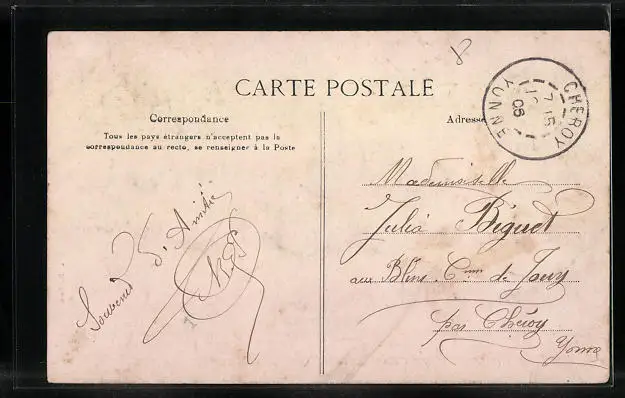 CARTE POSTALE
Correspondance
Tous les pays étrangers n'acceptent pas la
correspondance au recto, se renseigner à la Poste
Adresse
CHEROY
YONNE
7-15
06
8
Mademoiselle
Julia Biguet
aux Blins. Cne de Jouy
par Chéroy
Yonne
Souvenir d'Amitié